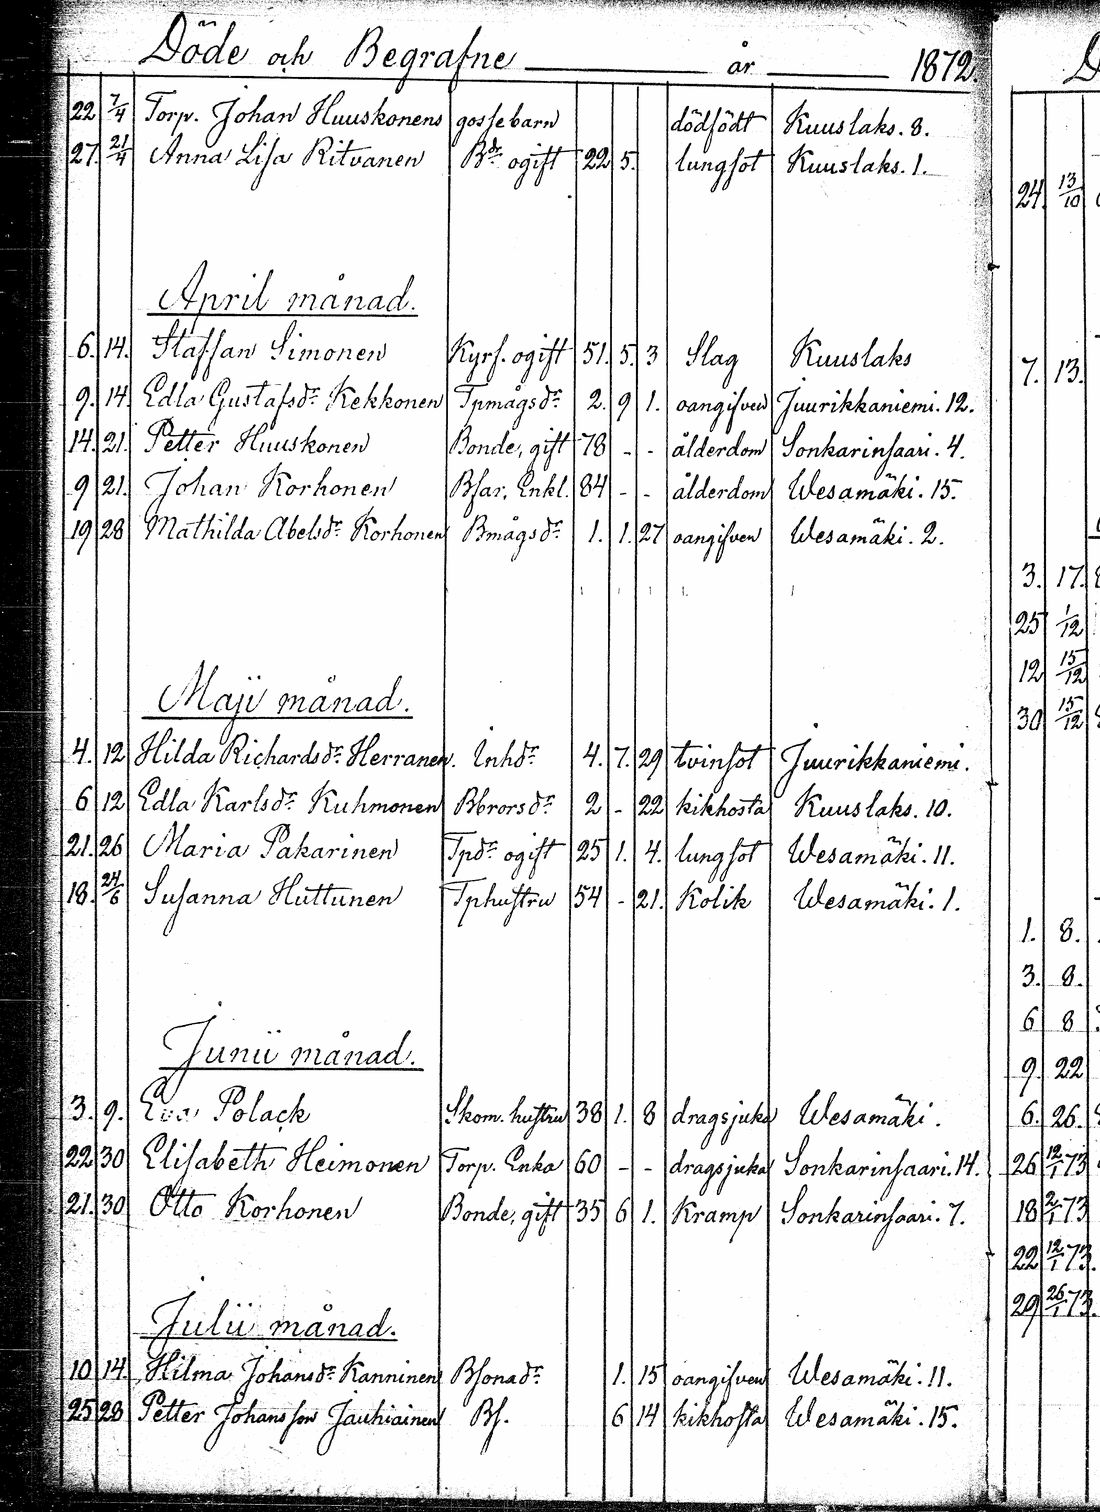 Döde och Begrafne år 1872.
22 7/4 Torp. Johan Huuskonens gossebarn dödfödt Kuuslaks. 8.
27. 21/4 Anna Lisa Ritvanen Bdr ogift 22 5. lungsot Kuuslaks. 1.
April månad.
6. 14. Staffan Simonen Kyrf. ogift 51. 5. 3 Slag Kuuslaks
9. 14. Edla Gustafsdr Kekkonen Tpmågsdr 2. 9 1. oangifven Juurikkaniemi. 12.
14. 21. Petter Huuskonen Bonde, gift 78 - - ålderdom Sonkarinsaari. 4.
9 21. Johan Korhonen Bfar, Enkl. 84 - - ålderdom Wesamäki. 15.
19 28 Mathilda Abelsdr Korhonen Bmågsdr 1. 1. 27 oangifven Wesamäki. 2.
Maji månad.
4. 12 Hilda Richardsdr Herranen. Inhdr 4. 7. 29 tvinsot Juurikkaniemi.
6 12 Edla Karlsdr Kuhmonen Bbrorsdr 2 - 22 kikhosta Kuuslaks. 10.
21. 26 Maria Pakarinen Tpdr ogift 25 1. 4. lungsot Wesamäki. 11.
18. 24/6 Susanna Huttunen Tphustru 54 - 21. Kolik Wesamäki. 1.
Junii månad.
3. 9. Eva Polack Skom. hustru 38 1. 8 dragsjuka Wesamäki.
22 30 Elisabeth Heimonen Torp. Enka 60 - - dragsjuka Sonkarinsaari. 14.
21. 30 Otto Korhonen Bonde, gift 35 6 1. Kramp Sonkarinsaari. 7.
Julii månad.
10 14. Hilma Johansdr Kanninen Bsonadr 1. 15 oangifven Wesamäki. 11.
25 28 Petter Johansson Jauhiainen Bs. 6 14 kikhosta Wesamäki. 15.
D
24. 13/10
7. 13.
3. 17.
25 1/12
12 15/12
30 15/12
1. 8.
3. 8.
6 8
9. 22
6. 26.
26 12/1 73
18 2/1 73
22 12/1 73.
29 26/1 73.